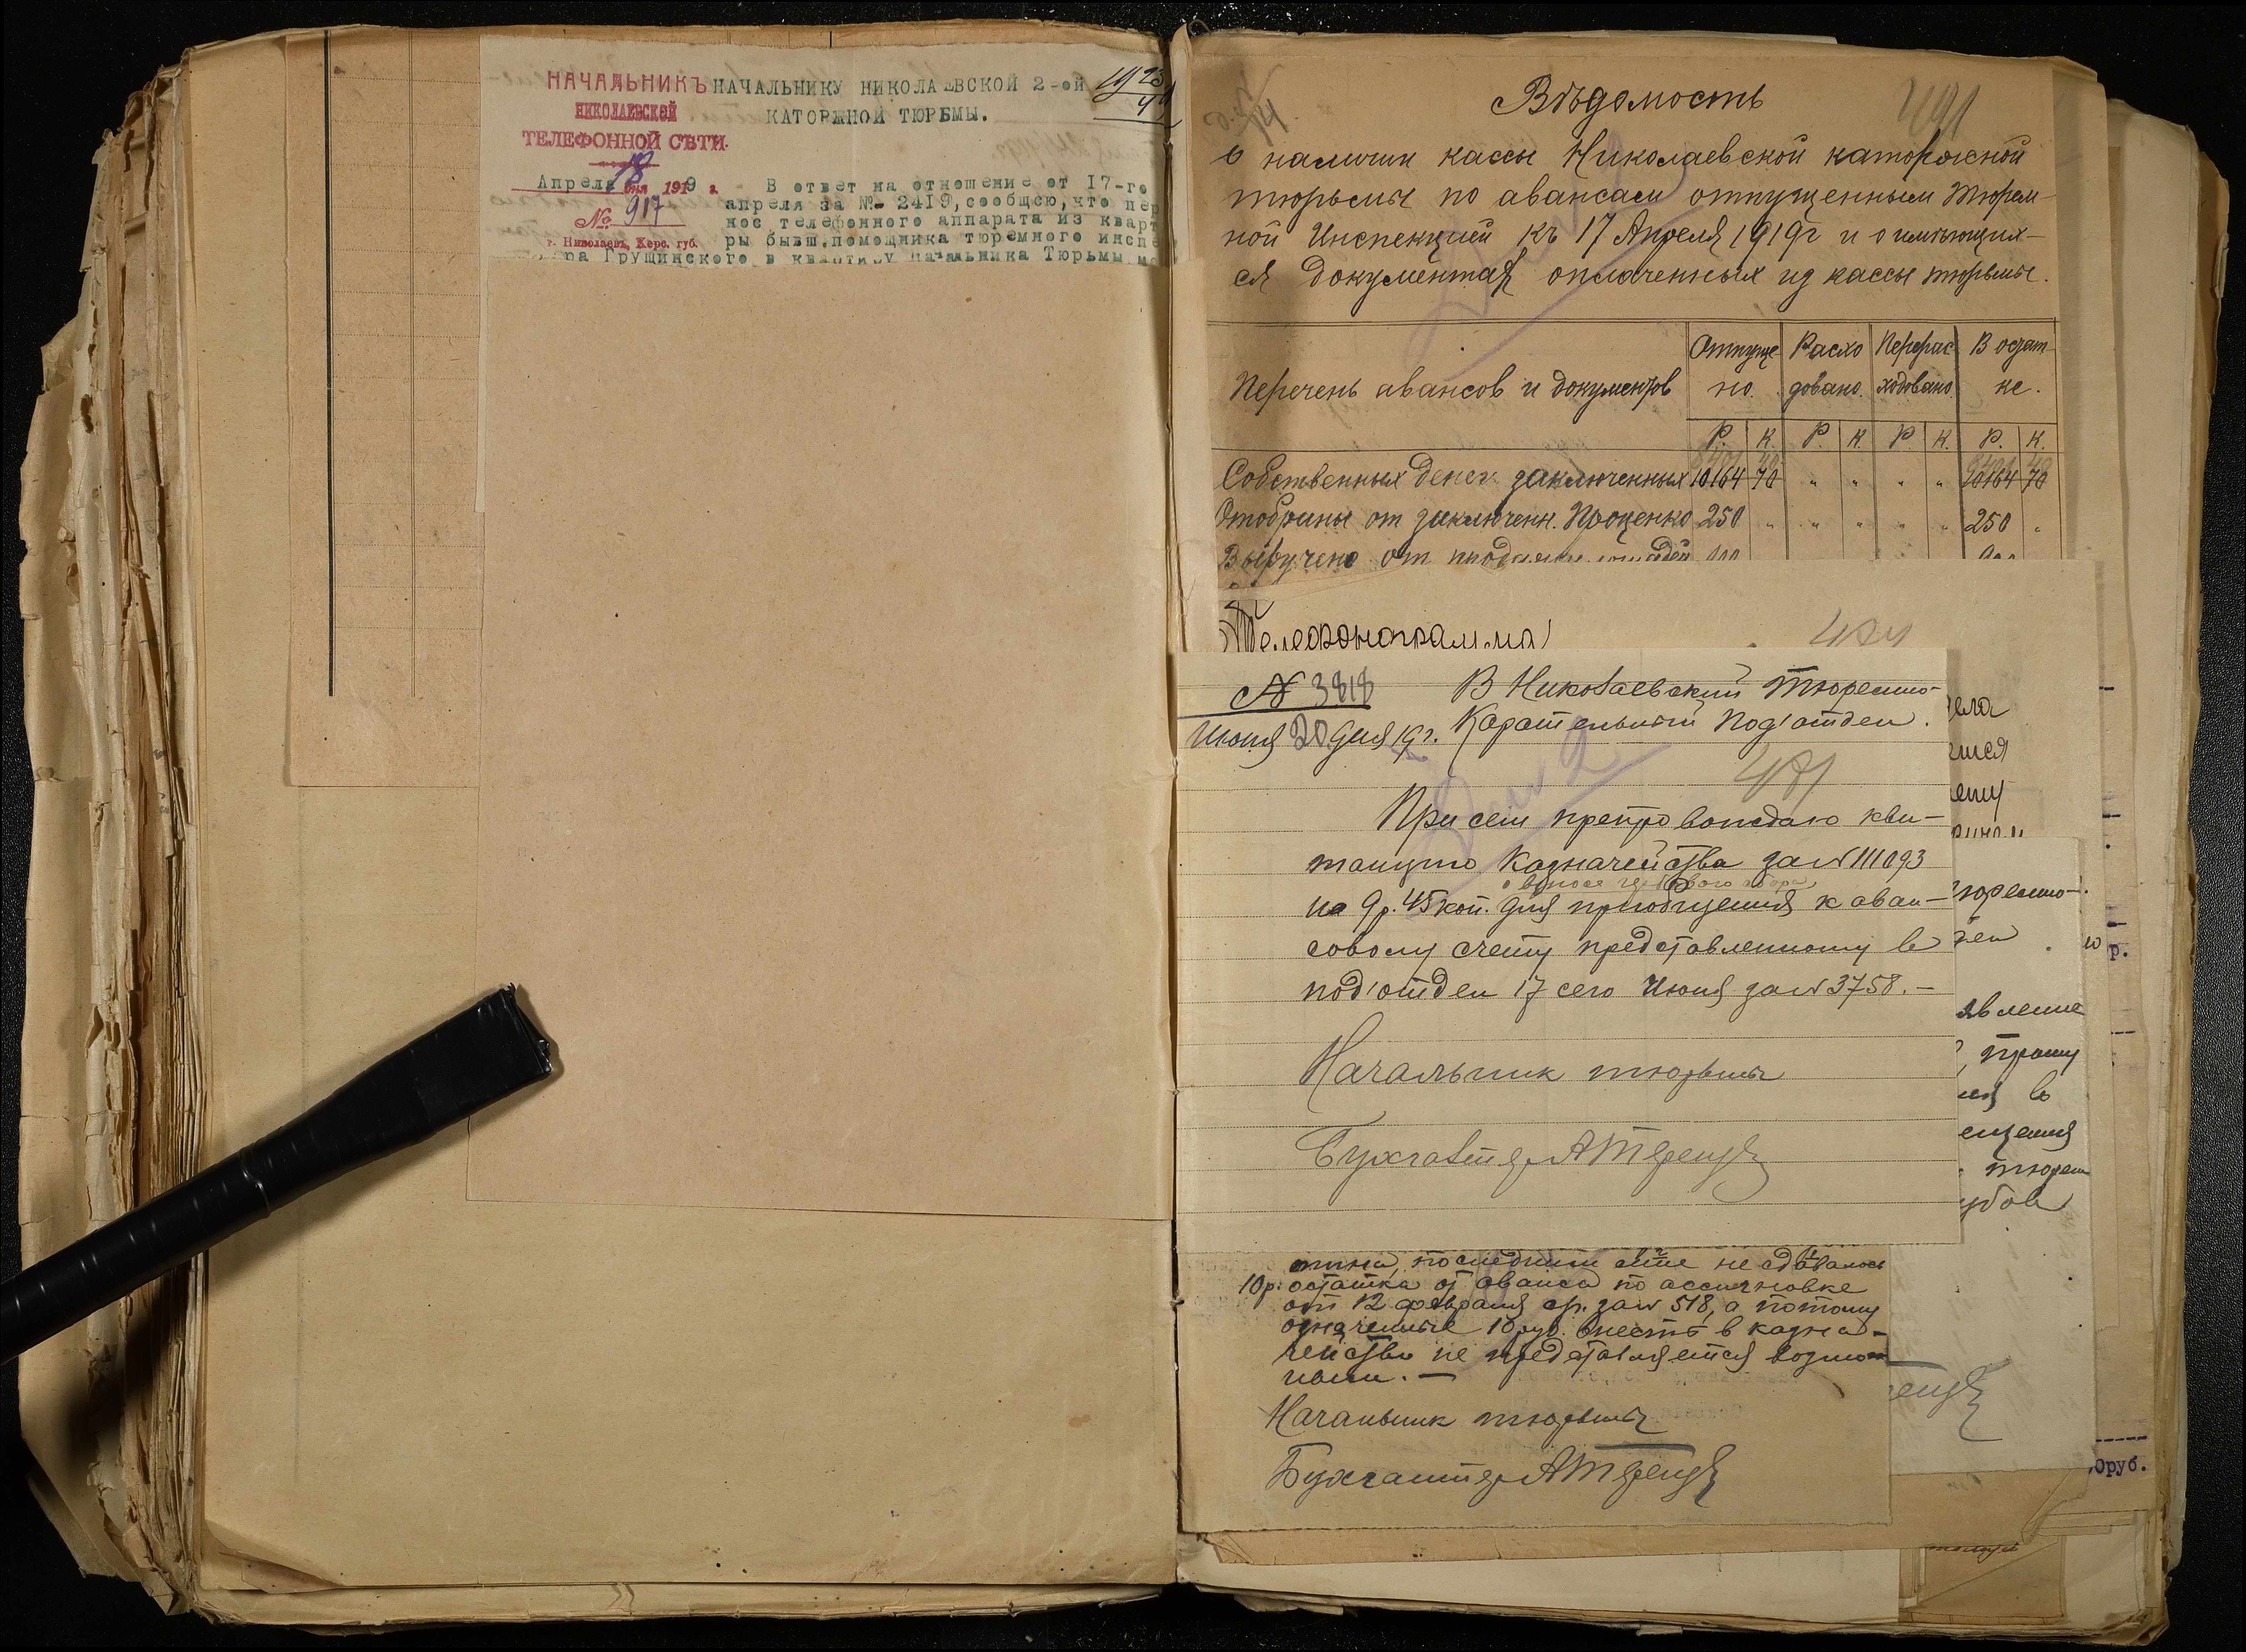 НАЧАЛЬНИКЪ
НИКОЛАЕВСКОЙ
ТЕЛЕФОННОЙ СѢТИ.
Апреля 18 дня 1919 г.
№ 917
г. Николаевъ, Херс. губ.
НАЧАЛЬНИКУ НИКОЛАЕВСКОЙ 2-ой
КАТОРЖНОЙ ТЮРЬМЫ.
В ответ на отношение от 17-го
апреля за №- 2419, сообщсю, что пер
нос телефонного аппарата из кварт
ры бывш. помощника тюремного инспе
ра Грущинского в квартиру начальника Тюрьмы мо
Вѣдомость
491
о наличии кассы Николаевской каторжной
тюрьмы по авансам отпущенным Тюрем-
ной Инспекцией къ 17 Апреля 1919г и о имѣющих-
ся документах оплаченных из кассы тюрьмы.
Перечень авансов и документов
Отпуще-но.
Расхо довано.
Перерас ходовано
В остат-ке.
Р. К. Р. К. Р. К. Р. К.
Собственных денег заключенных 10164 70 " " " " 10164 70
Отобраны от заключенн. Проценко 250 " " " " " 250 "
Выручено от продажи лошадей
Телефонограмма
N 3818
Июня 20 дня 19 г.
В Николаевский Тюремно-
Карательный Под'отдел.
При сем препровождаю кви-
танцию Казначейства за N 111093
о взносе гербового сбора
на 9 р. 45 коп. для приобщения к аван-
совому счету представленному в
под'отдел 17 сего Июня за N 3758. —
Начальник тюрьмы
Бухгалтер
последним мне не сдавалось
10 р: остатка от аванса по ассигновке
от 12 февраля с.г. за N 518, а потому
означенные 10 руб. внести в казна-
чейство не представляется возмож
ным. —
Начальник тюрьмы
Бухгалтер
ела
шися
ему
тюремно-
р.
явление
, прошу
ия в
ещения
тюрем
убов
0руб.